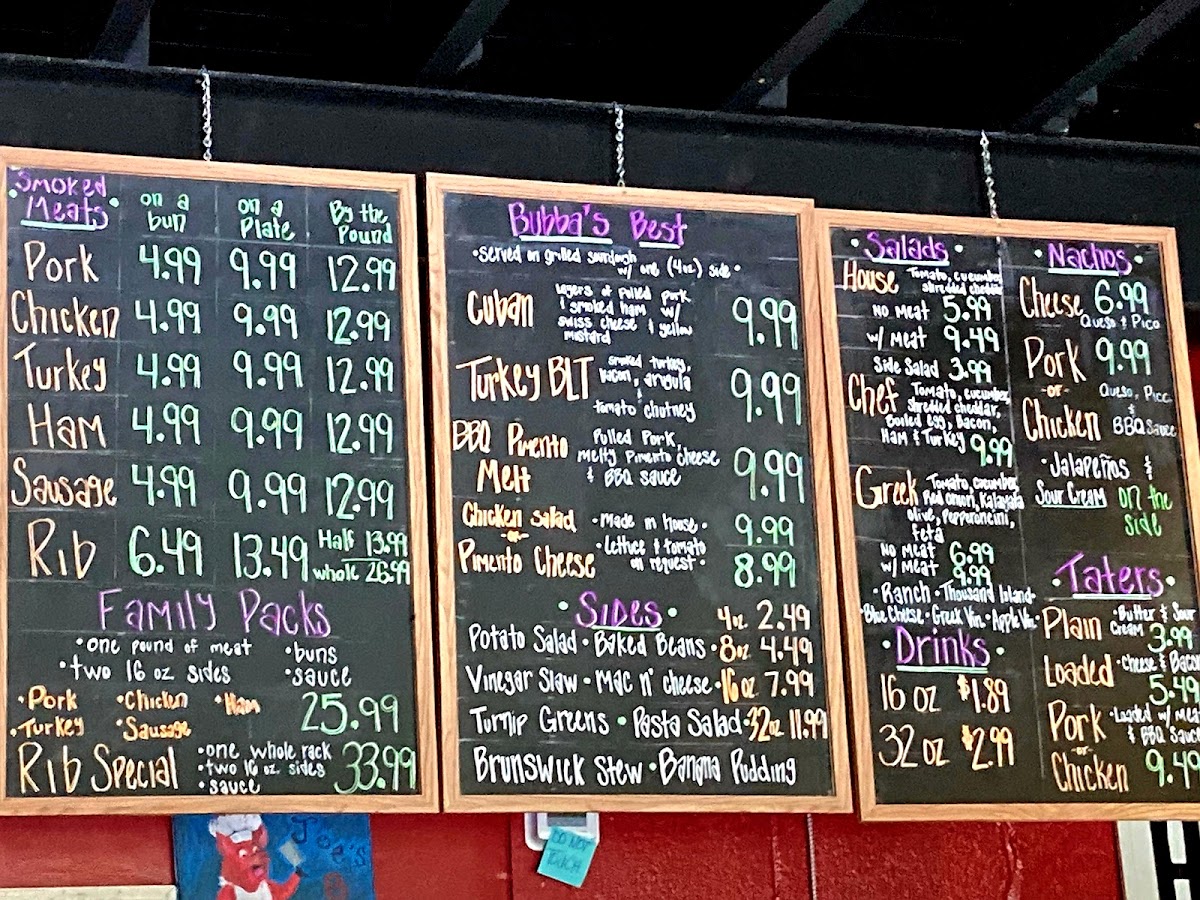 Smoked Meats on a bun on a Plate By the Pound
Pork 4.99 9.99 12.99
Chicken 4.99 9.99 12.99
Turkey 4.99 9.99 12.99
Ham 4.99 9.99 12.99
Sausage 4.99 9.99 12.99
Rib 6.49 13.49 Half 13.99
whole 26.99
Family Packs
•one pound of meat •buns
•two 16 oz sides •sauce
•Pork •Chicken •Ham 25.99
•Turkey •Sausage
Rib Special •one whole rack 33.99
•two 16 oz. sides
•sauce
Bubba's Best
•served on grilled sourdough
w/ one (4oz) side•
Cuban layers of Pulled Pork 9.99
& smoked ham w/
swiss cheese & yellow
mustard
Turkey BLT smoked turkey, 9.99
bacon, arugula
&
tomato chutney
BBQ Pimento Melt Pulled Pork, 9.99
melty Pimento cheese
& BBQ sauce
Chicken Salad •Made in house• 9.99
-or- •lettuce & tomato
Pimento Cheese on request• 8.99
•Sides• 4oz 2.49
Potato Salad •Baked Beans •8oz 4.49
Vinegar Slaw •Mac n' cheese •16oz 7.99
Turnip Greens •Pasta Salad •32oz 11.99
Brunswick Stew •Banana Pudding
•Salads•
House Tomato, cucumber
shredded cheddar
No Meat 5.99
w/ Meat 9.49
Side Salad 3.99
Chef Tomato, cucumber
shredded cheddar,
Boiled egg, Bacon,
Ham & Turkey 9.99
Greek Tomato, cucumber
Red onion, Kalamata
olive, Pepperoncini,
feta
No Meat 6.99
w/ Meat 9.99
•Ranch •Thousand Island•
•Blue Cheese •Greek Vin. •Apple Vin.
•Drinks•
16 oz $1.89
32 oz $2.99
•Nachos•
Cheese 6.99
Queso & Pico
Pork 9.99
-or- Queso, Pico
&
Chicken BBQ Sauce
•Jalapeños &
Sour Cream on the
side
•Taters•
Plain •Butter & Sour
Cream 3.99
Loaded •Cheese & Bacon
5.49
Pork •Loaded w/ Meat
-or- & BBQ Sauce
Chicken 9.49
Joe's
DO NOT
TOUCH